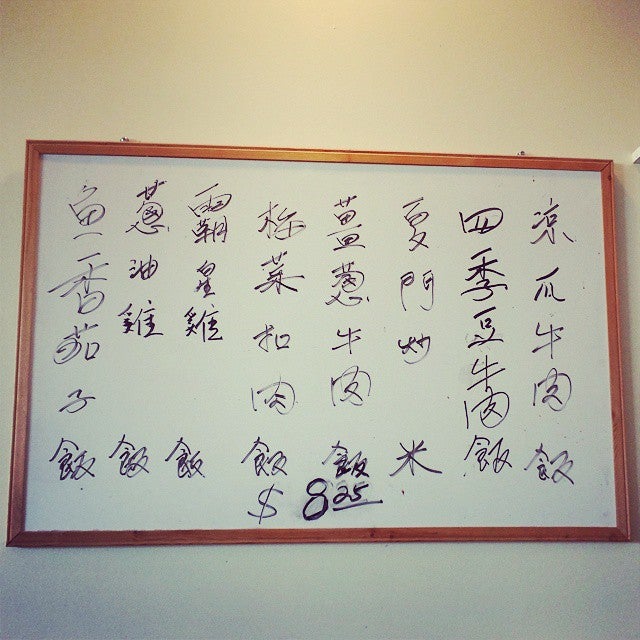 凉瓜牛肉飯
四季豆牛肉飯
夏門炒米
薑蔥牛肉飯
梅菜扣肉飯
霸皇雞飯
蔥油雞飯
魚香茄子飯
$8.25